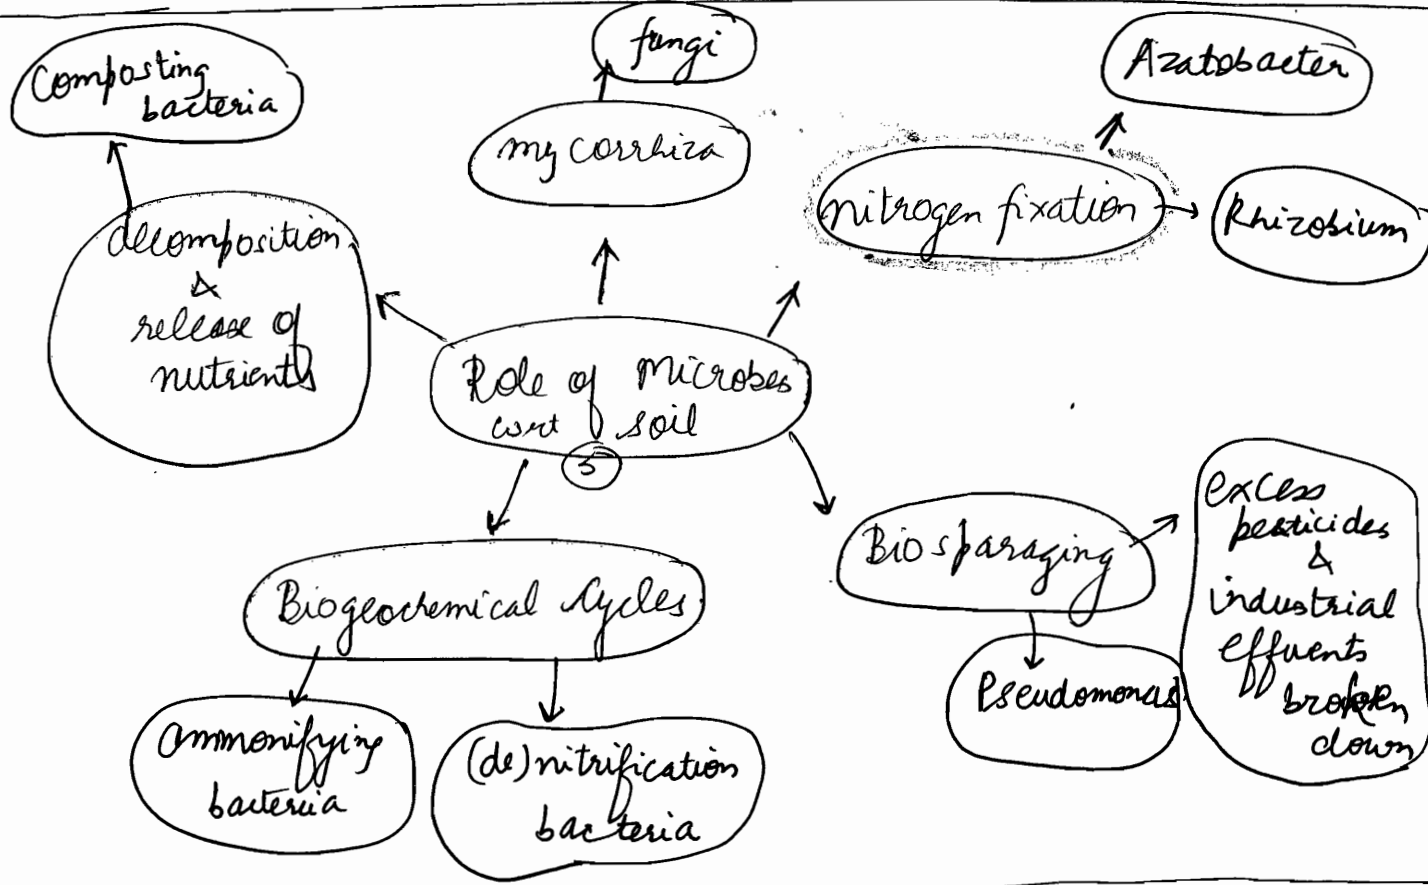 Composting
bacteria
fungi
Azatobacter
mycorrhiza
nitrogen fixation
Rhizobium
decomposition
&
release of
nutrients
Role of Microbes
wrt soil
5
Biosparaging
excess
pesticides
&
industrial
effuents
broken
down
Pseudomonas
Biogeochemical Cycles
ammonifying
bacteria
(de)nitrification
bacteria